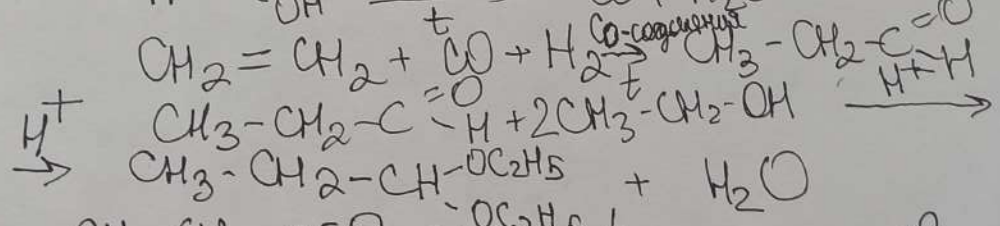 OH
t
CH2 = CH2 + CO + H2 Co-соединения → CH3 - CH2 - C =O - H
H+ t H+
CH3 - CH2 - C =O - H + 2CH3 - CH2 - OH →
→ CH3 - CH2 - CH - OC2H5 + H2O
- OC2H5